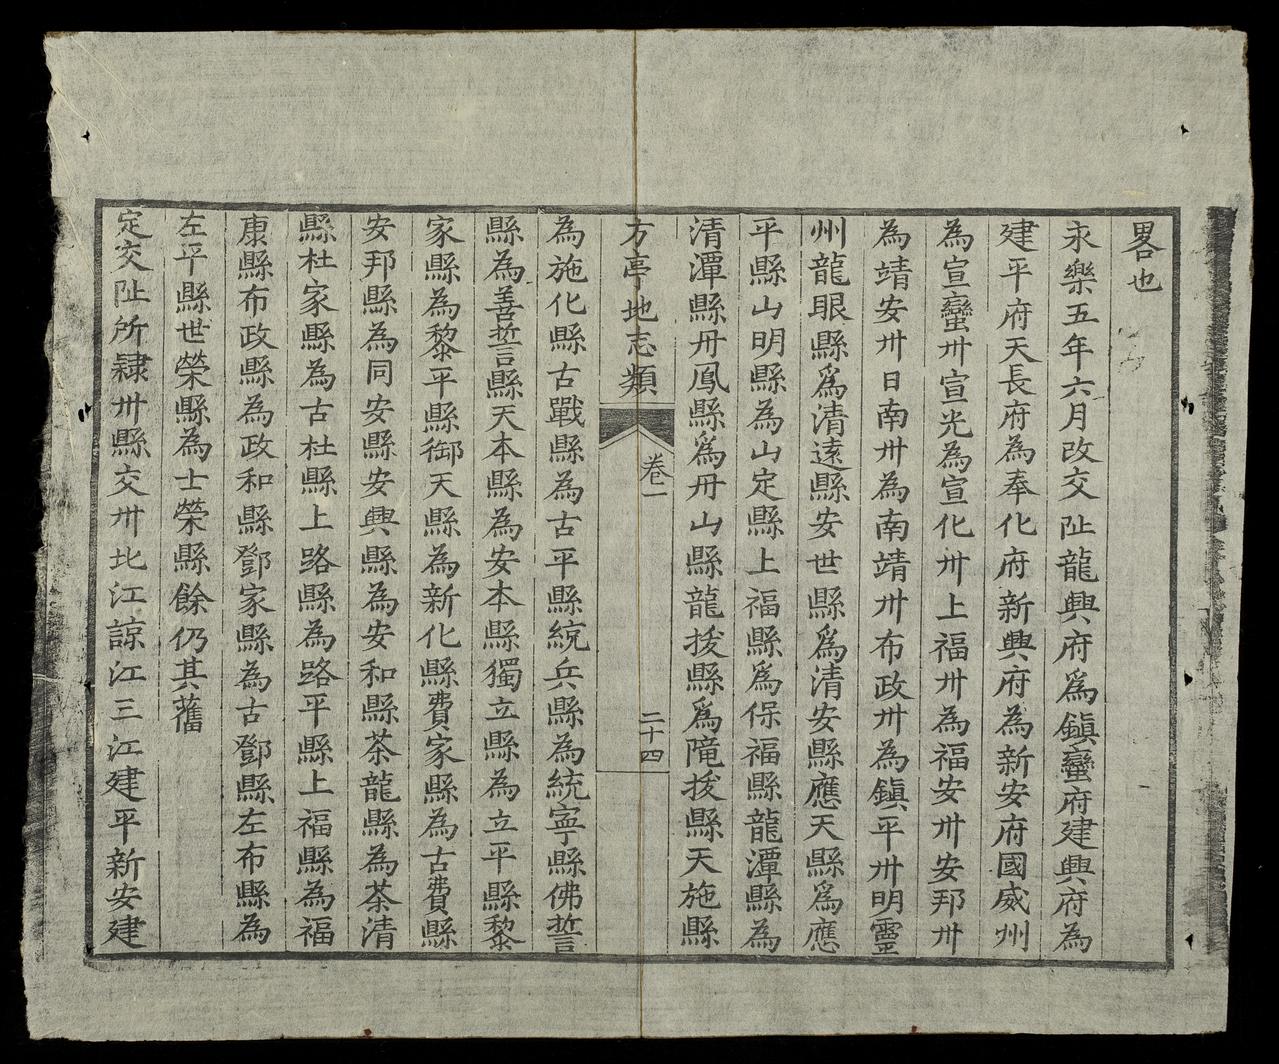 畧也
永樂五年六月改交阯龍興府爲鎮蠻府建興府為
建平府天長府為奉化府新興府為新安府國威州
為宣蠻卅宣光為宣化卅上福卅為福安卅安邦卅
為靖安卅日南卅為南靖卅布政卅為鎮平卅明靈
州龍眼縣爲清遠縣安世縣爲清安縣應天縣爲應
平縣山明縣為山定縣上福縣爲保福縣龍潭縣為
清潭縣丹鳳縣爲丹山縣龍拔縣爲隴拔縣天施縣
方亭地志類
卷一
二十四
為施化縣古戰縣為古平縣統兵縣為統寧縣佛誓
縣為善誓縣天本縣為安本縣獨立縣為立平縣黎
家縣為黎平縣御天縣為新化縣費家縣為古費縣
安邦縣為同安縣安興縣為安和縣茶龍縣為茶清
縣杜家縣為古杜縣上路縣為路平縣上福縣為福
康縣布政縣為政和縣鄧家縣為古鄧縣左布縣為
左平縣世榮縣為士榮縣餘仍其舊
定交阯所隸卅縣交卅北江諒江三江建平新安建